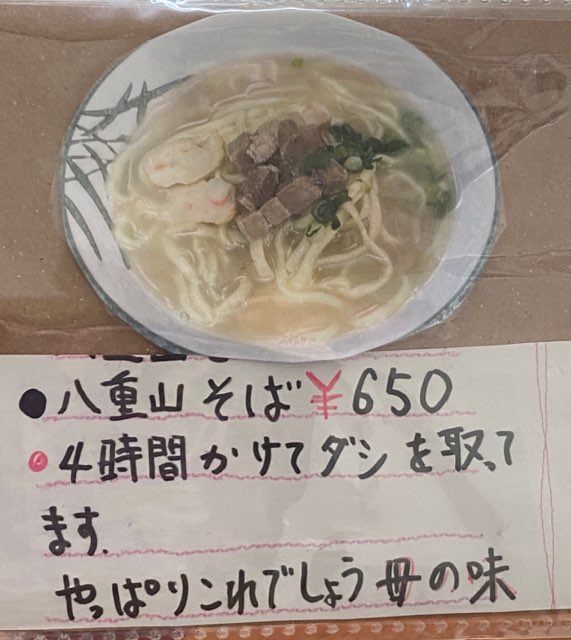 ●八重山そば¥650
●4時間かけてダシを取って
ます.
やっぱりこれでしょう母の味